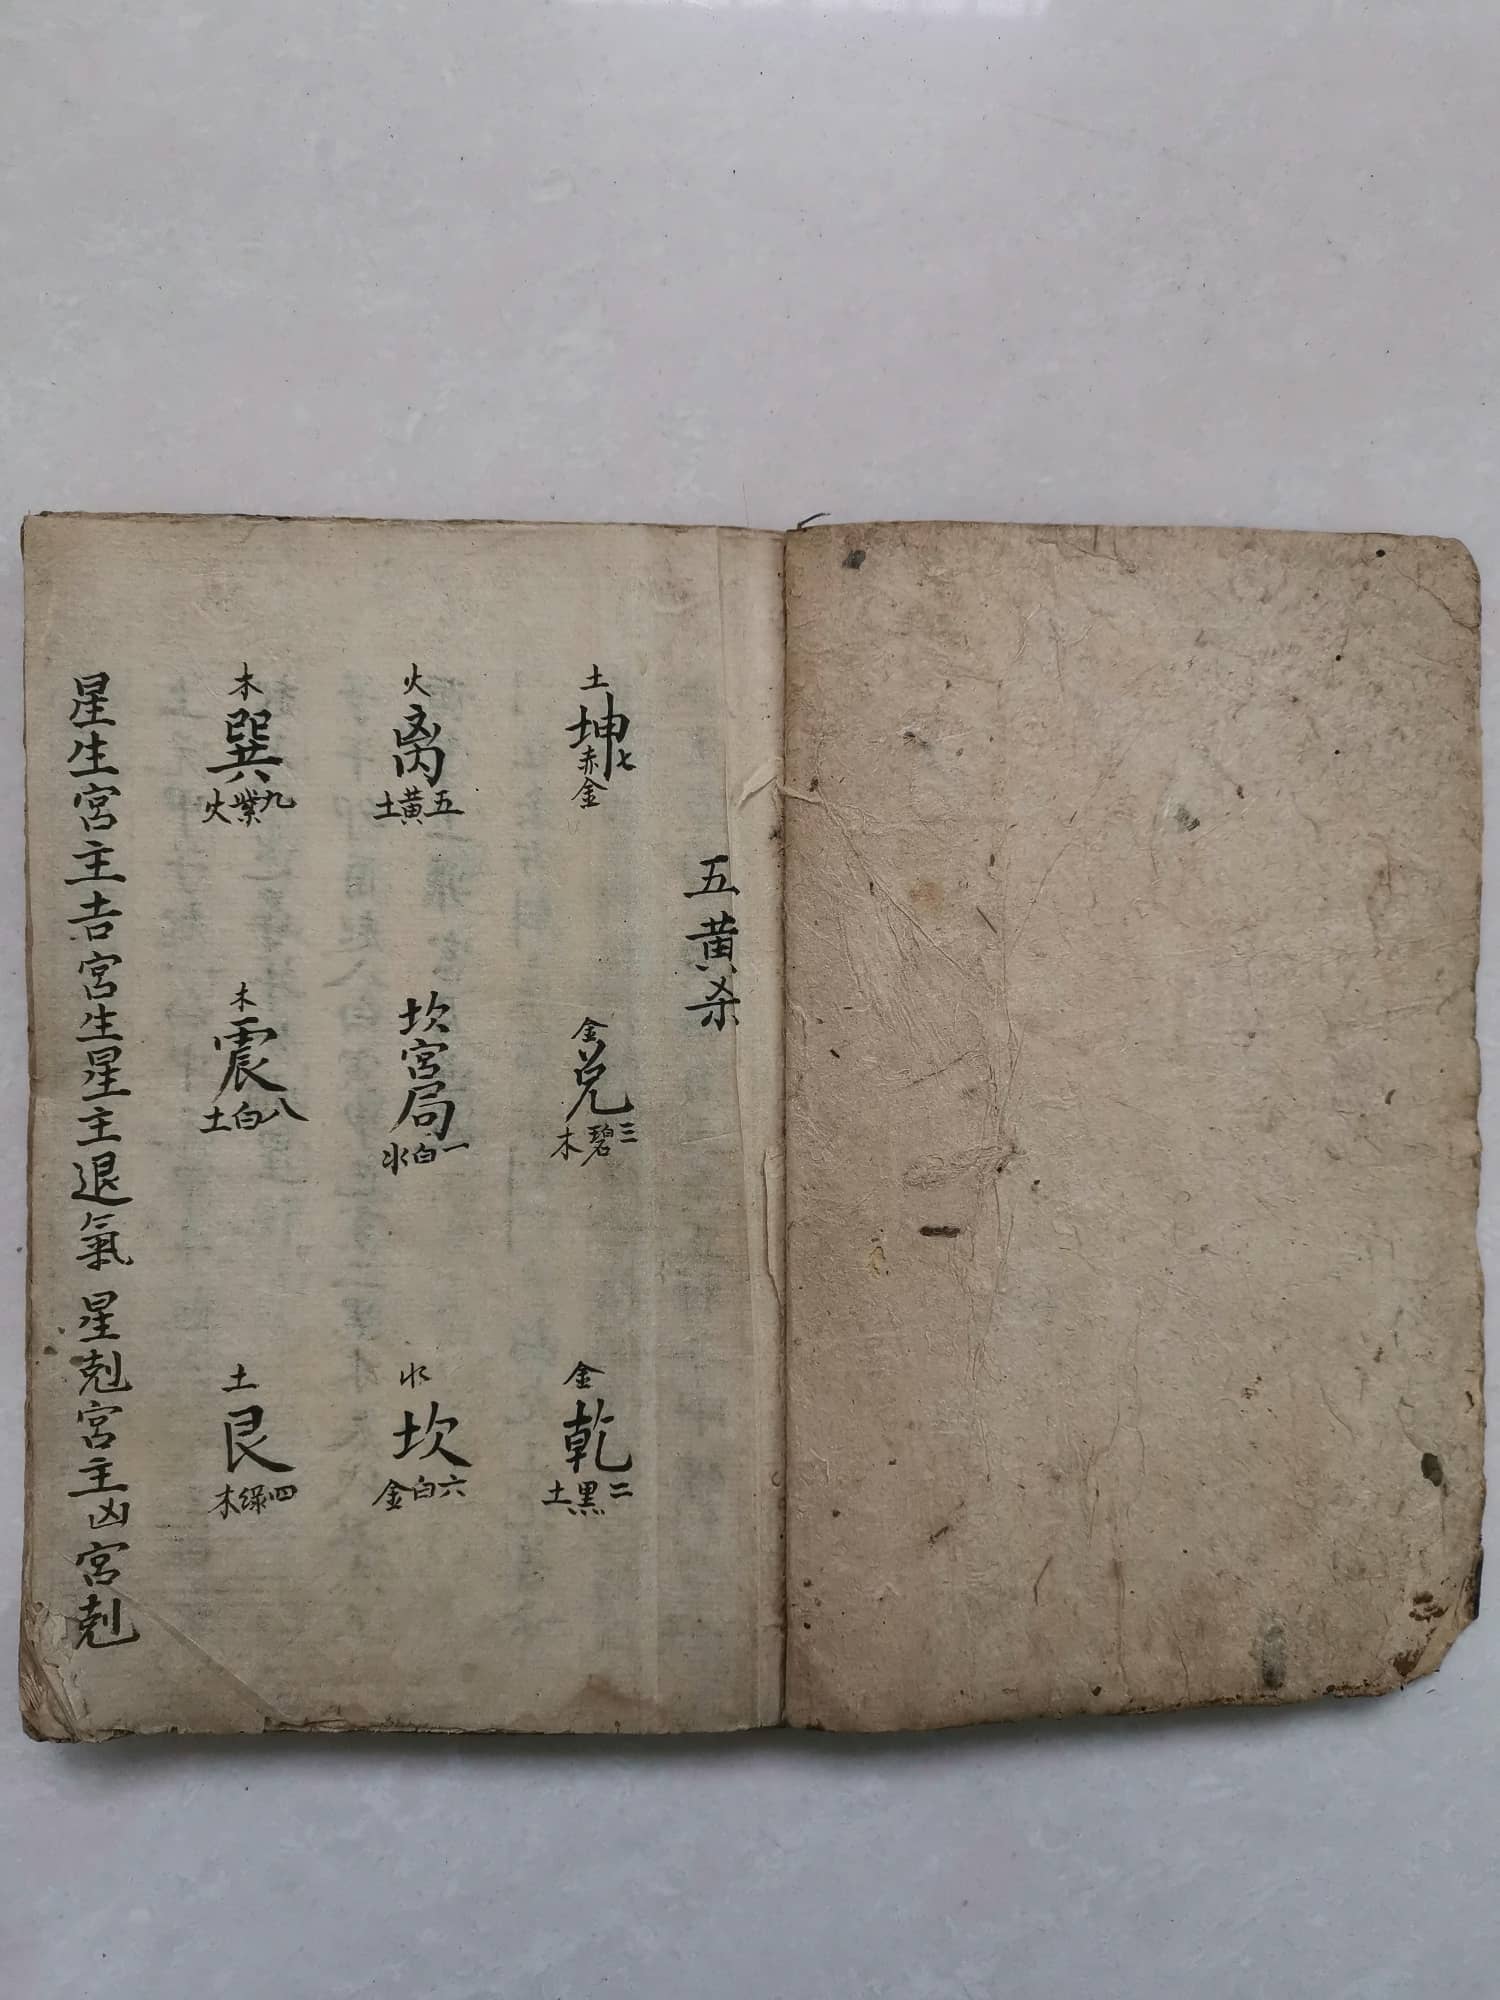 五黃杀
土
坤
七赤金
金
兑
三碧木
金
乾
二黑土
火
离
五黃土
坎宮局
一白水
水
坎
六白金
木
巽
九紫火
木
震
八白土
土
艮
四绿木
星生宮主吉宮生星主退氣 星剋宮主凶宮剋